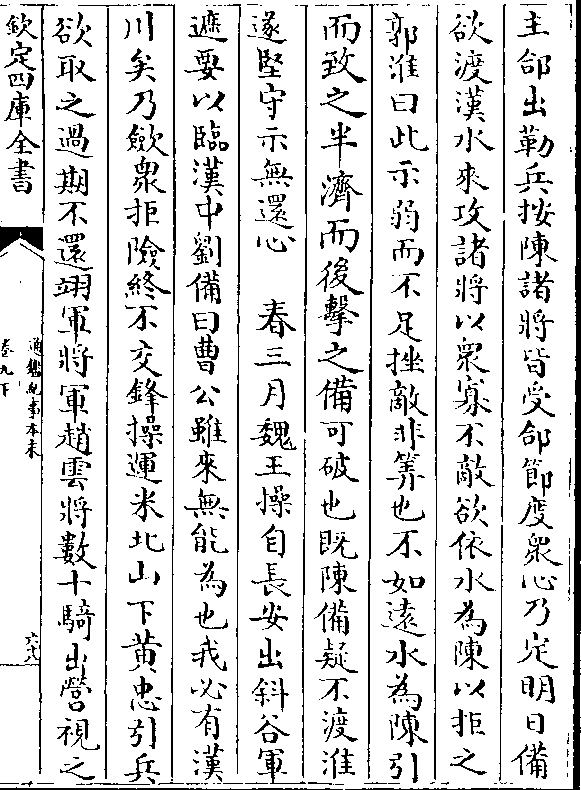 主郃出勒兵按陳諸將皆受郃節度衆心乃定明日備
欲渡漢水來攻諸將以衆寡不敵欲依水為陳以拒之
郭淮曰此示弱而不足挫敵非筭也不如遠水為陳引
而致之半濟而後擊之備可破也既陳備疑不渡淮
遂堅守示無還心 春三月魏王操自長安出斜谷軍
遮要以臨漢中劉備曰曹公雖來無能為也我必有漢
川矣乃歛衆拒險終不交鋒操運米北山下黄忠引兵
欲取之過期不還翊軍將軍趙雲將數十騎出營視之
欽定四庫全書
通鑑紀事本末
卷九下
六八